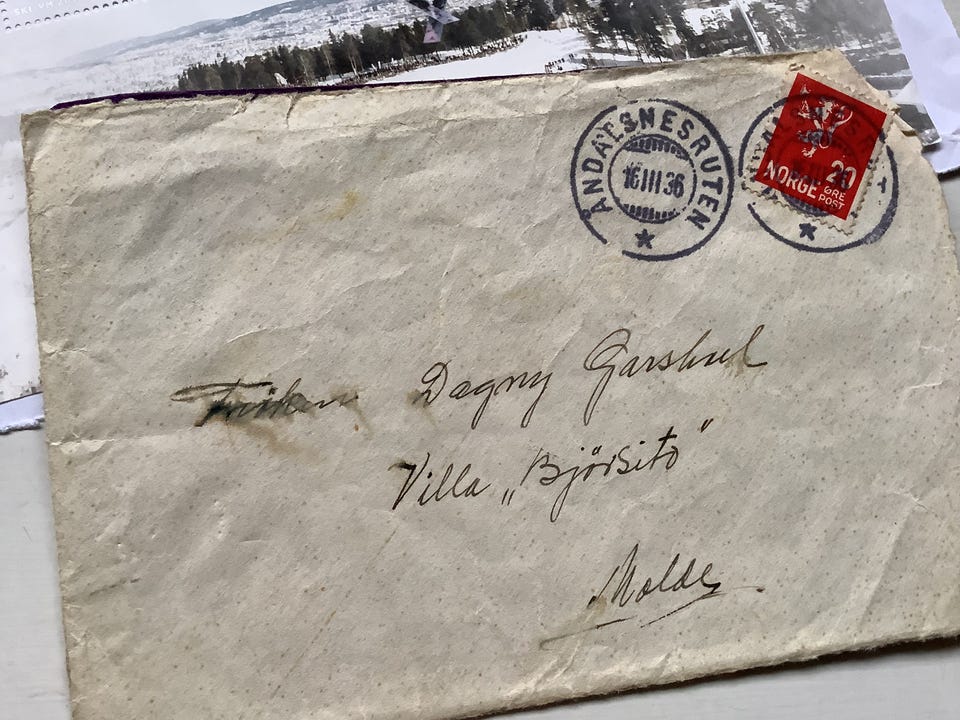 SKI VM
ÅNDALSNESRUTEN
16 III 36
20
NORGE ØRE
POST
Frøken Dagny Garshul
Villa „Björsito"
Molde